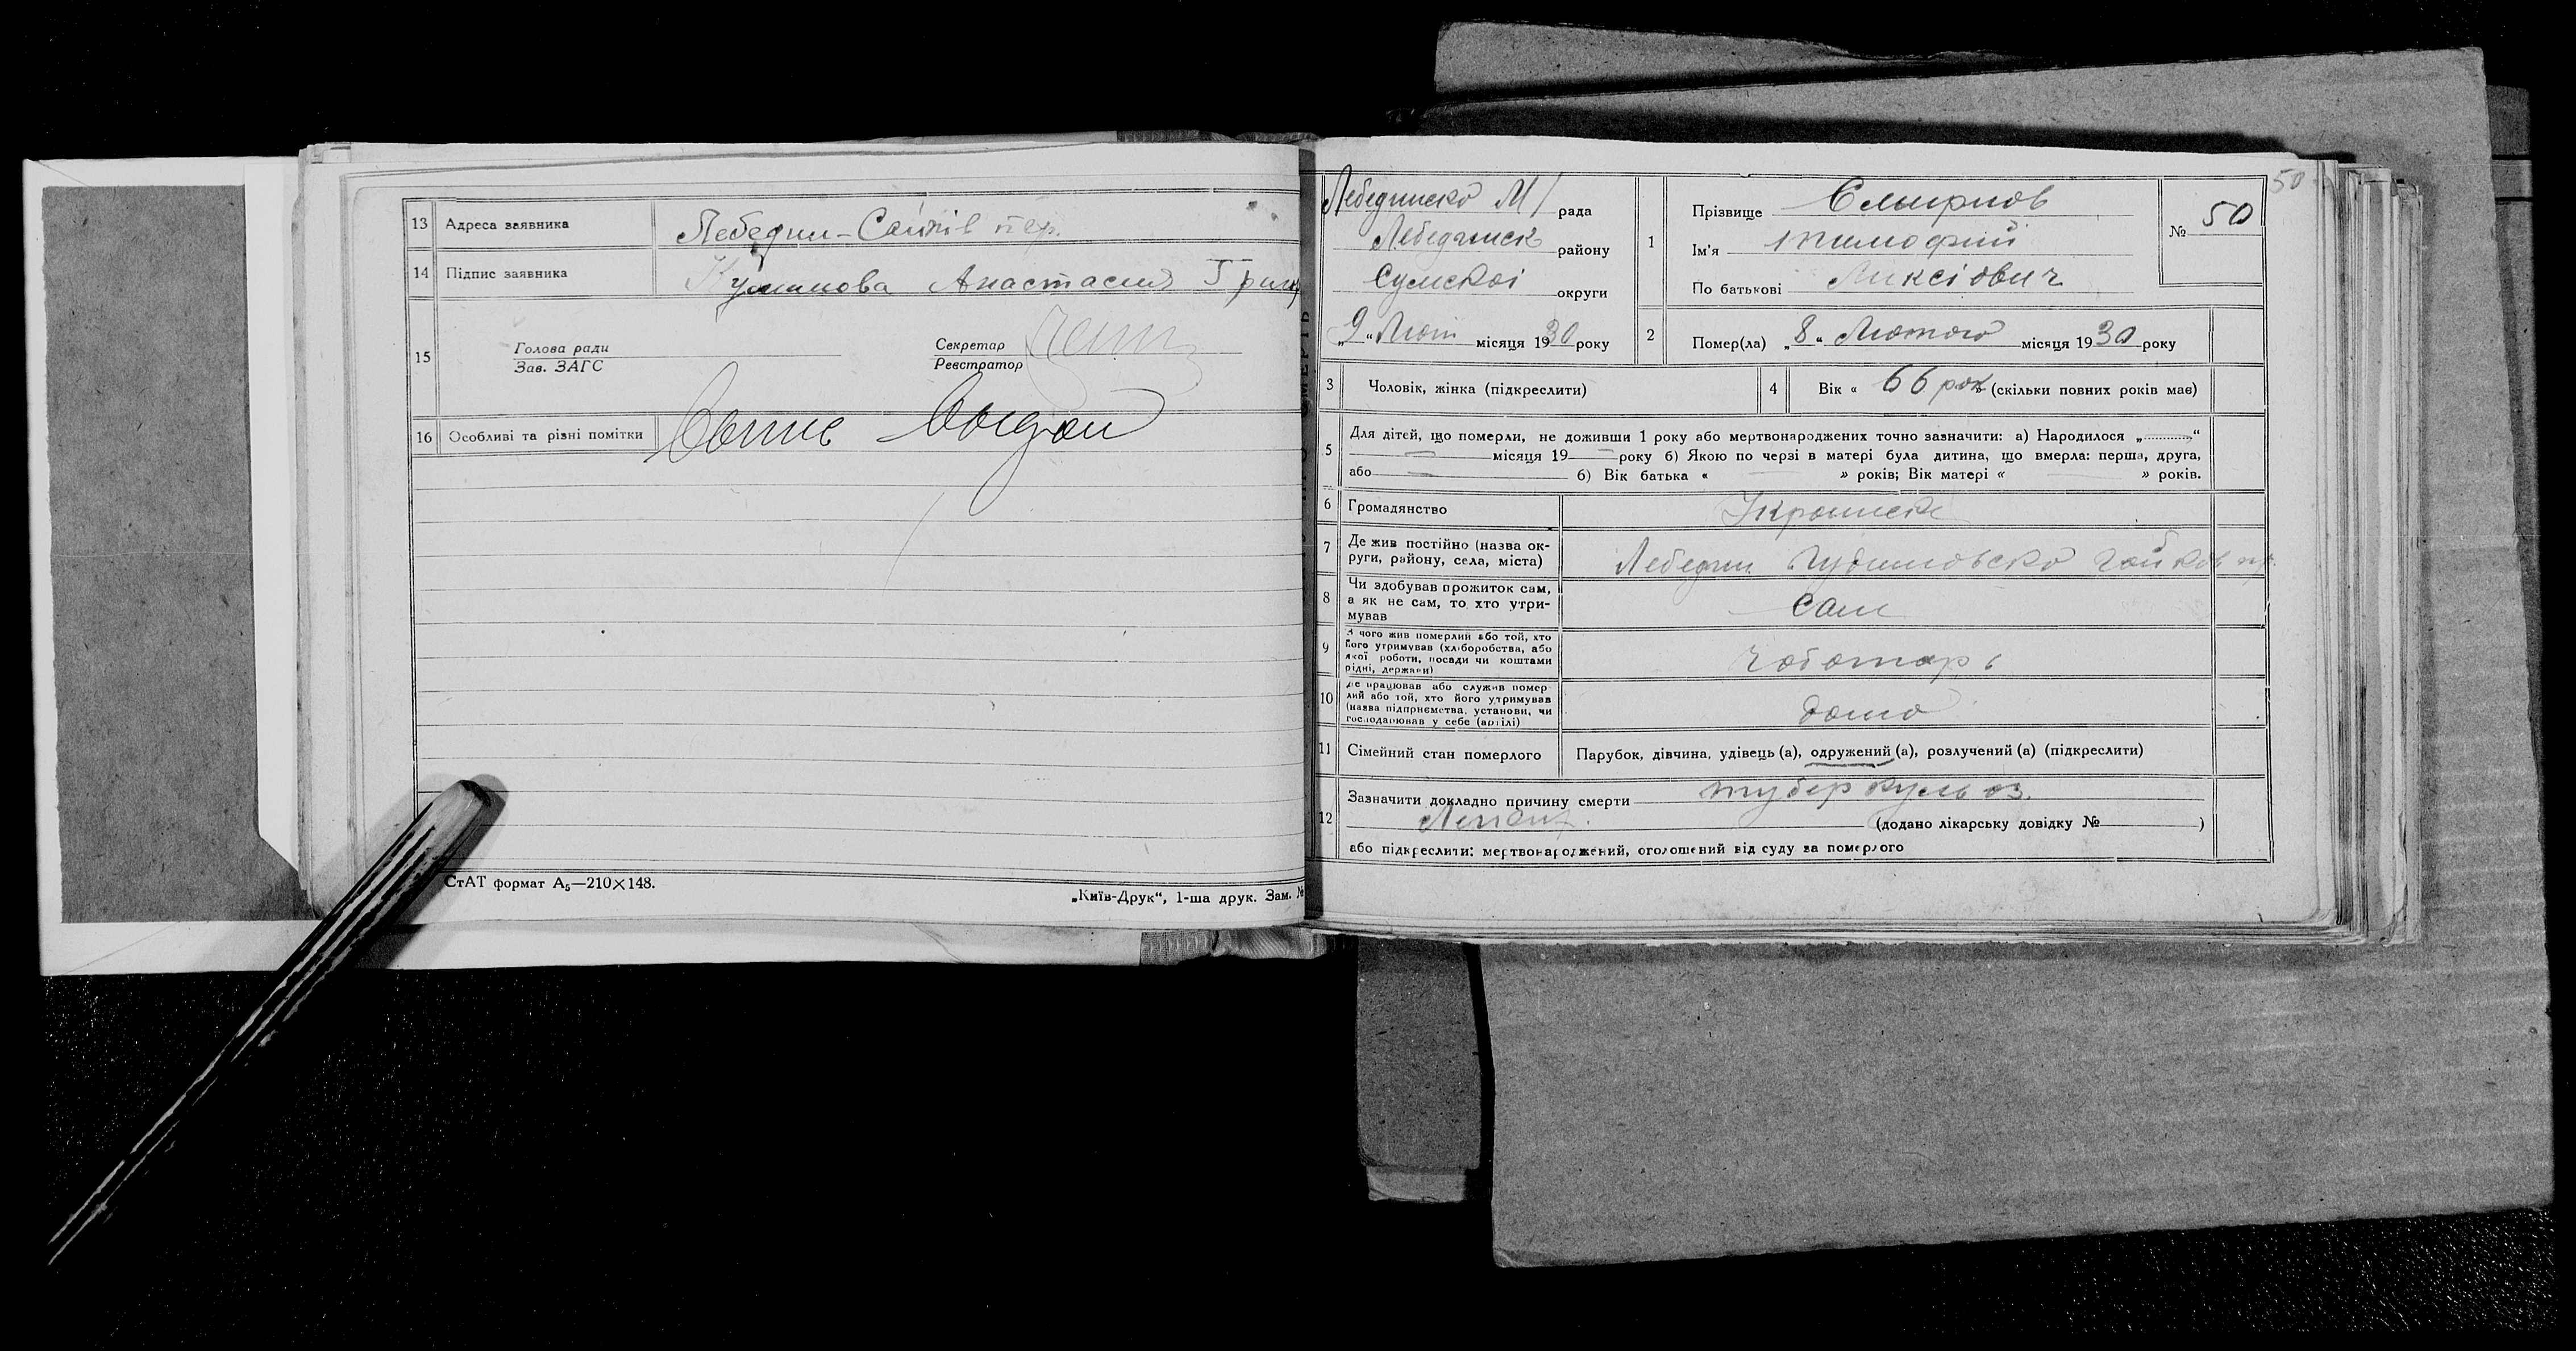 13 Адреса заявника Лебедин-Сайків пер.
14 Підпис заявника Кумпанова Анастасия Григ
15 Голова ради Секретар
Зав. ЗАГС Реєстратор
16 Особливі та різні помітки
СтАТ формат А₅—210×148.
„Київ-Друк“, 1-ша друк. Зам. №
50
Лебединско М/ рада
Лебединск району
Сумскоі округи
„9“ Лют місяця 1930 року
1 Прізвище Смирнов
Ім'я Тимофий
По батькові Ликсіович
№ 50
2 Помер(ла) „8“ Лютого місяця 1930 року
3 Чоловік, жінка (підкреслити) 4 Вік « 66 рок (скільки повних років має)
5 Для дітей, що померли, не доживши 1 року або мертвонароджених точно зазначити: а) Народилося „............“
— місяця 19 — року б) Якою по черзі в матері була дитина, що вмерла: перша, друга,
або — б) Вік батька « » років; Вік матері « » років.
6 Громадянство Украинске
7 Де жив постійно (назва ок-
руги, району, села, міста) Лебедин
8 Чи здобував прожиток сам,
а як не сам, то хто утри-
мував Сам
9 З чого жив померлий або той, хто
його утримував (хліборобства, або
якої роботи, посади чи коштами
рідні, держави) Чоботарь
10 Де працював або служив помер-
лий або той, хто його утримував
(назва підприємства, установи, чи
господарював у себе (артілі) дома
11 Сімейний стан померлого Парубок, дівчина, удівець (а), одружений (а), розлучений (а) (підкреслити)
12 Зазначити докладно причину смерти туберкульоз
(додано лікарську довідку № )
або підкреслити: мертвонароджений, оголошений від суду за померлого